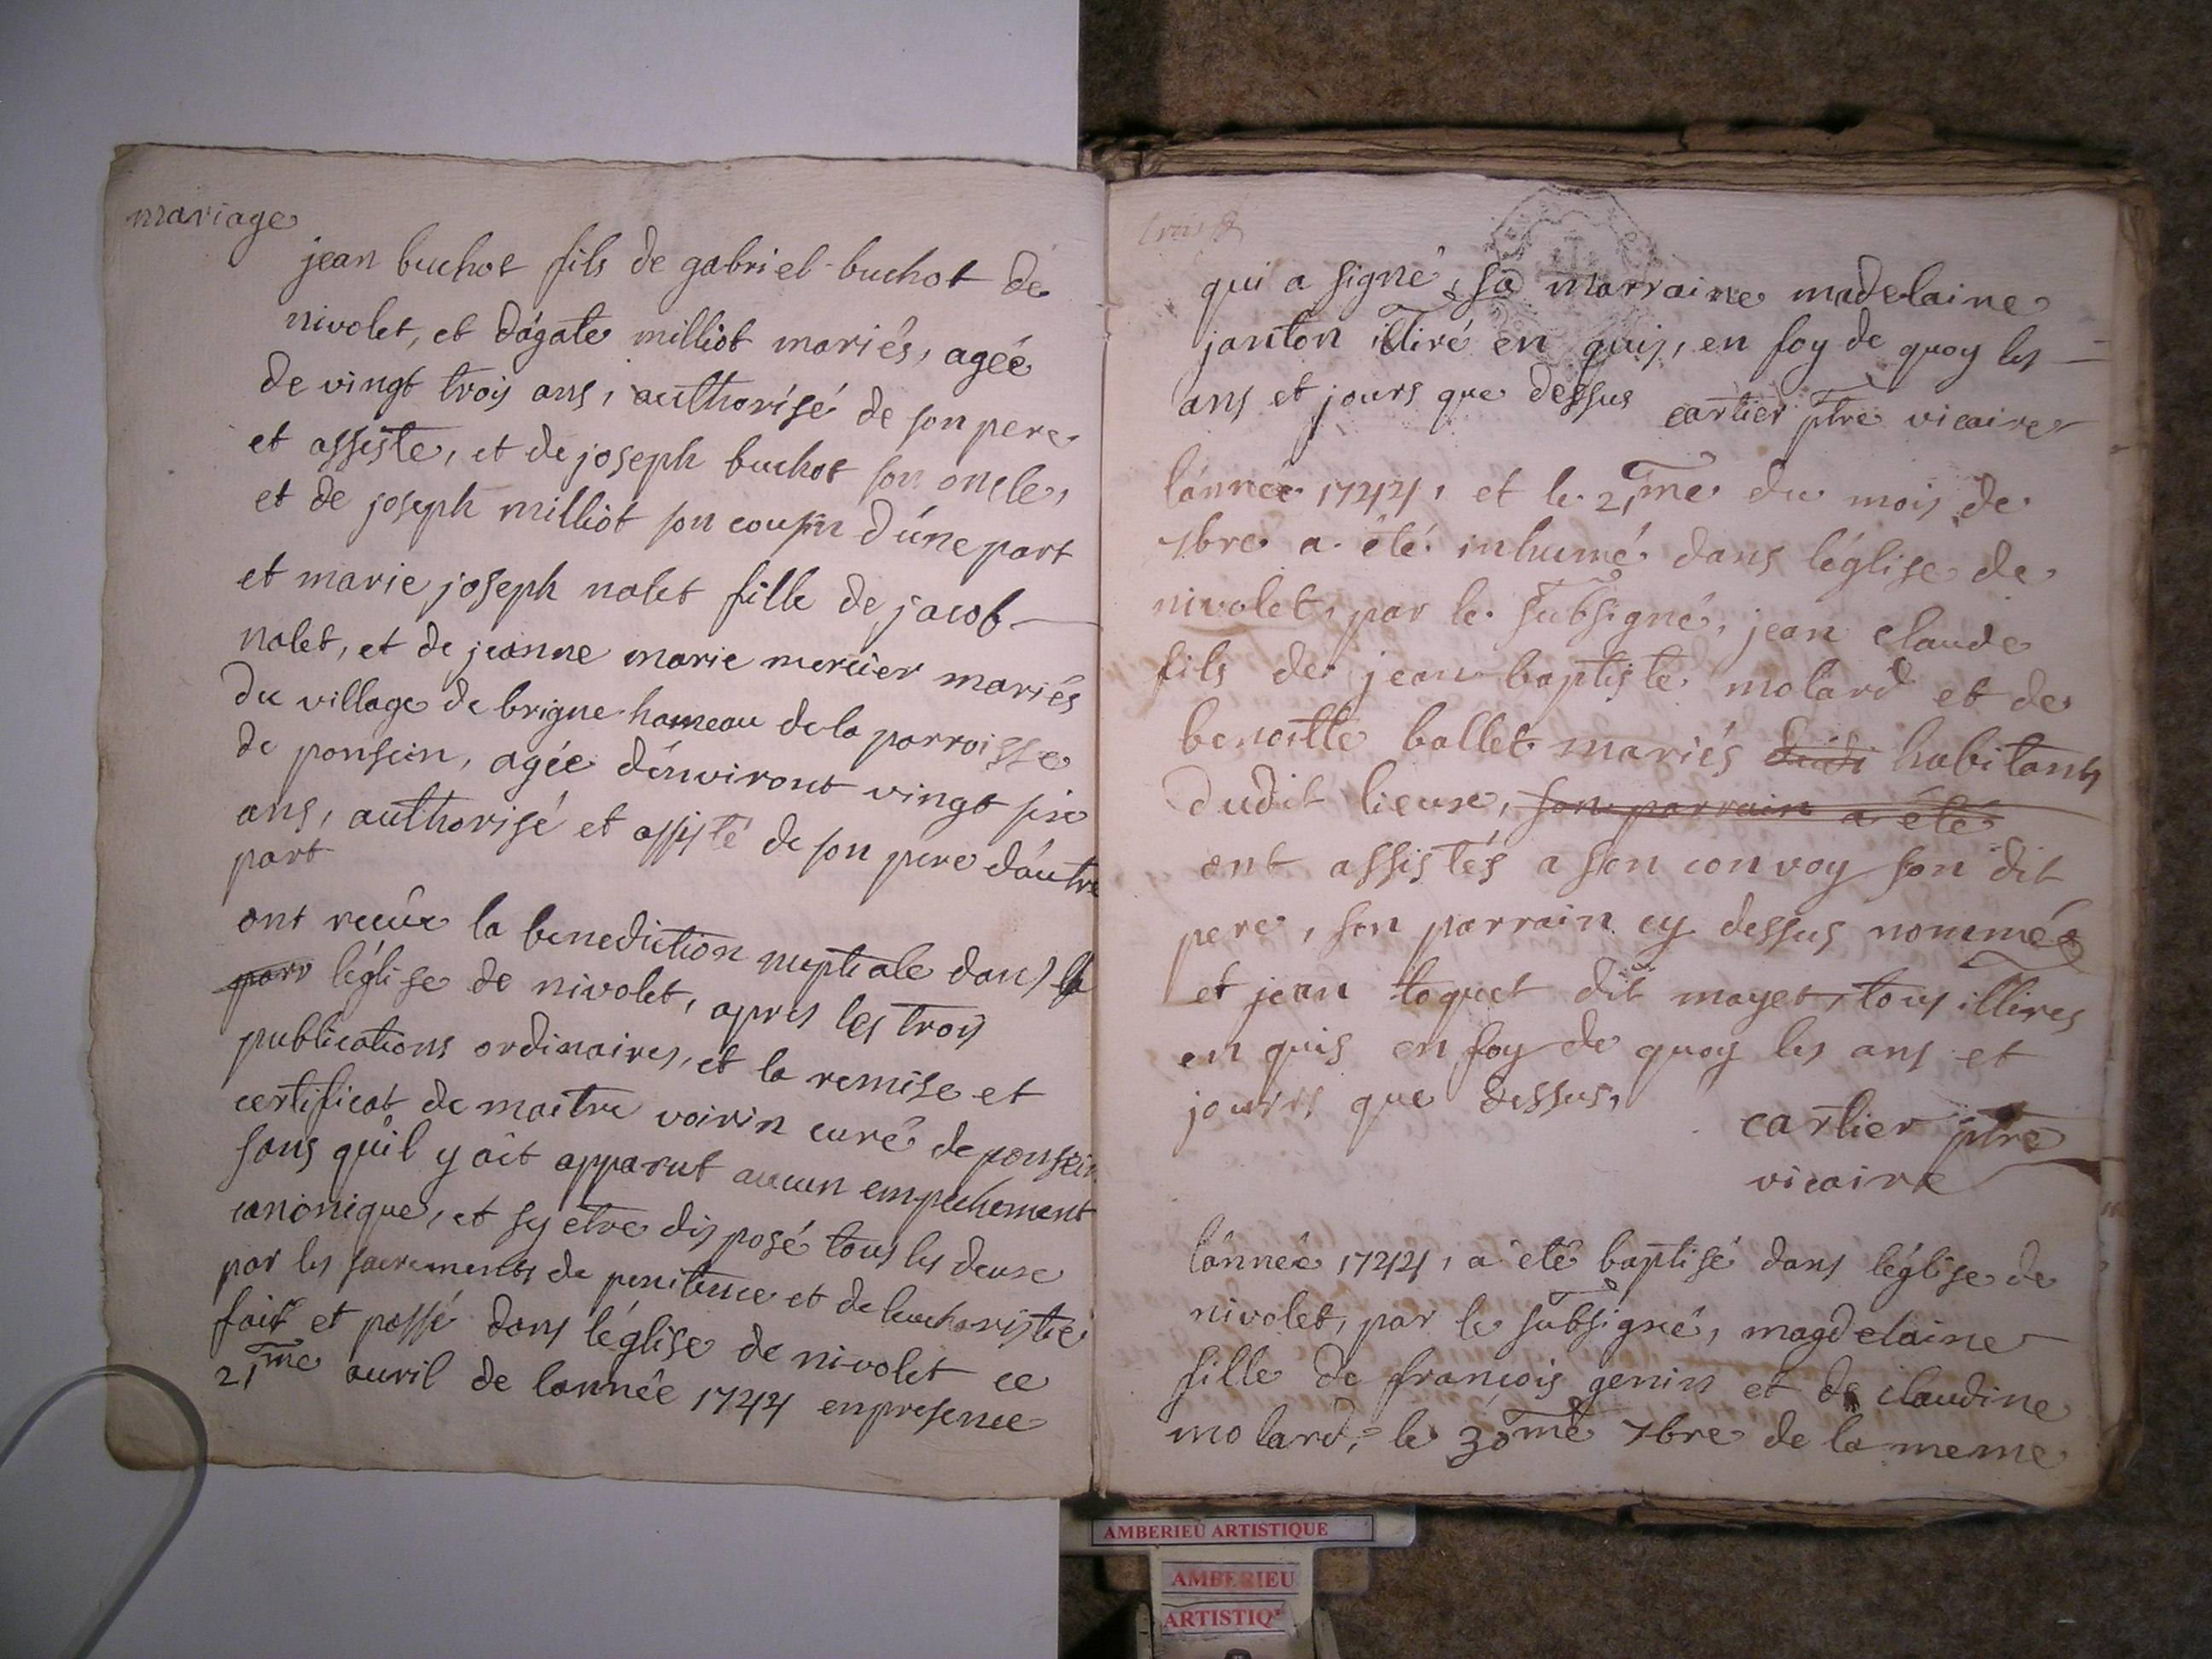 mariage
jean buchot fils de gabriel buchot de
nivolet, et dágate milliot mariés, agée
de vingt trois ans, authorisé de son pere
et assiste, et de joseph buchot son oncle,
et de joseph milliot son cousin dúne part
et marie joseph nalet fille de jacob
nalet, et de jeanne marie mercier mariés
du village de brigne hameau de la parroisse
de ponsein, agée dénviront vingt six
ans, authorisé et assisté de son pere dáutre
part
ont recüe la benediction nuptiale dans la
parr léglise de nivolet, apres les trois
publications ordinaires, et la remise et
certificat de maitre voirin curé de ponsein
sans quíl y ait apparut aucun empechement
canonique, et sy etre disposé tous les deux
par les sacrements de penitence et de leucharistie
fait et passé dans léglise de nivolet ce
21me avril de lannée 1744 enpresence
qui a signé, sa marraine madelaine
janton illiré en quis, en foy de quoy les
ans et jours que dessus cartier ptre vicaire
lánneé 1744, et le 21me du mois de
7bre a été inhumé dans léglise de
nivolet, par le subsigné, jean claude
fils de jean baptiste molard et de
benoitte ballet mariés dudi habitants
dudit lieux, son parrain a été
ont assistés a son convoy son dit
pere, son parrain cy dessus nommé
et jean toquet dit mayet, tous illires
en quis en foy de quoy les ans et
jours que dessus,
cartier ptre
vicaire
lánneé 1744, a eté baptisé dans léglise de
nivolet, par le subsigné, magdelaine
fille de francois genin et de claudine
molard, le 30me 7bre de la meme
AMBERIEU ARTISTIQUE
AMBERIEU
ARTISTIQ